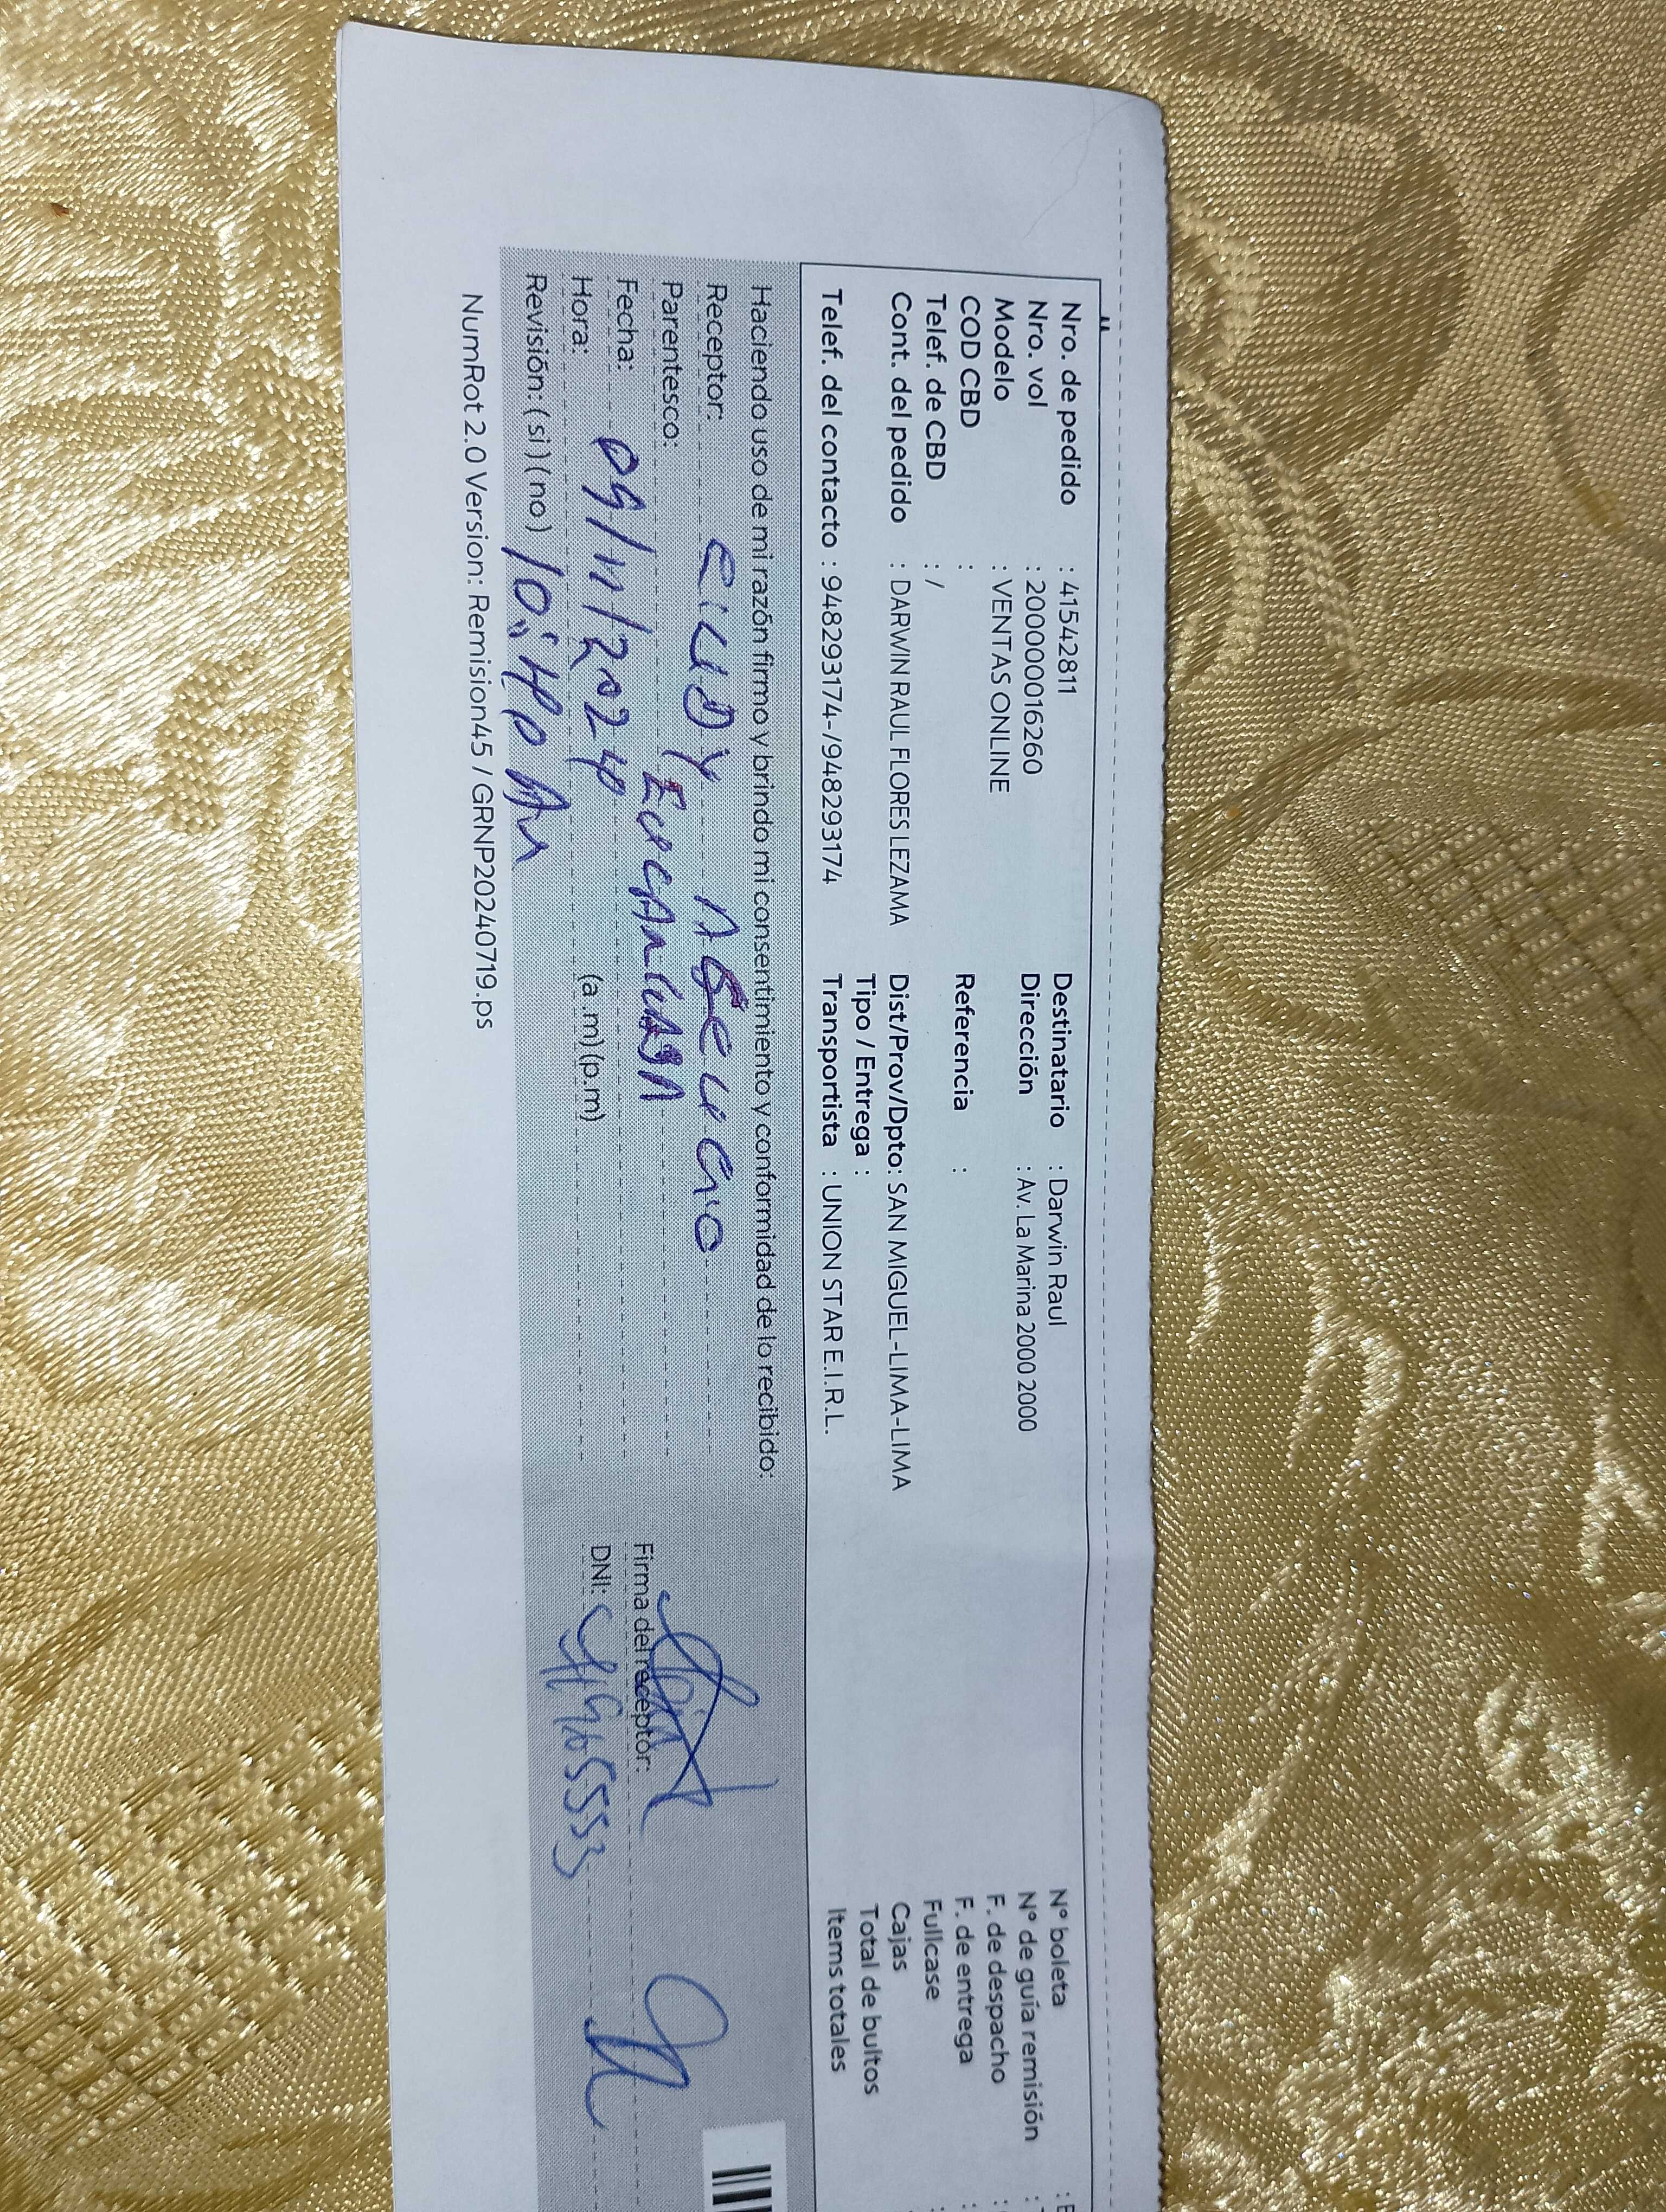 Nro. de pedido : 41542811
Nro. vol : 2000000016260
Modelo : VENTAS ONLINE
COD CBD :
Telef. de CBD : /
Cont. del pedido : DARWIN RAUL FLORES LEZAMA
Telef. del contacto : 948293174-/948293174
Destinatario : Darwin Raul
Dirección : Av. La Marina 2000 2000
Referencia :
Dist/Prov/Dpto: SAN MIGUEL-LIMA-LIMA
Tipo / Entrega :
Transportista : UNION STAR E.I.R.L.
N° boleta
N° de guía remisión
F. de despacho
F. de entrega
Fullcase
Cajas
Total de bultos
Items totales
Haciendo uso de mi razón firmo y brindo mi consentimiento y conformidad de lo recibido:
Receptor:
Parentesco:
Fecha: 09/11/2024
Hora: (a.m)(p.m)
Revisión: (si)(no) 10:40 AM
Firma del receptor:
DNI:
NumRot 2.0 Version: Remision45 / GRNP20240719.ps